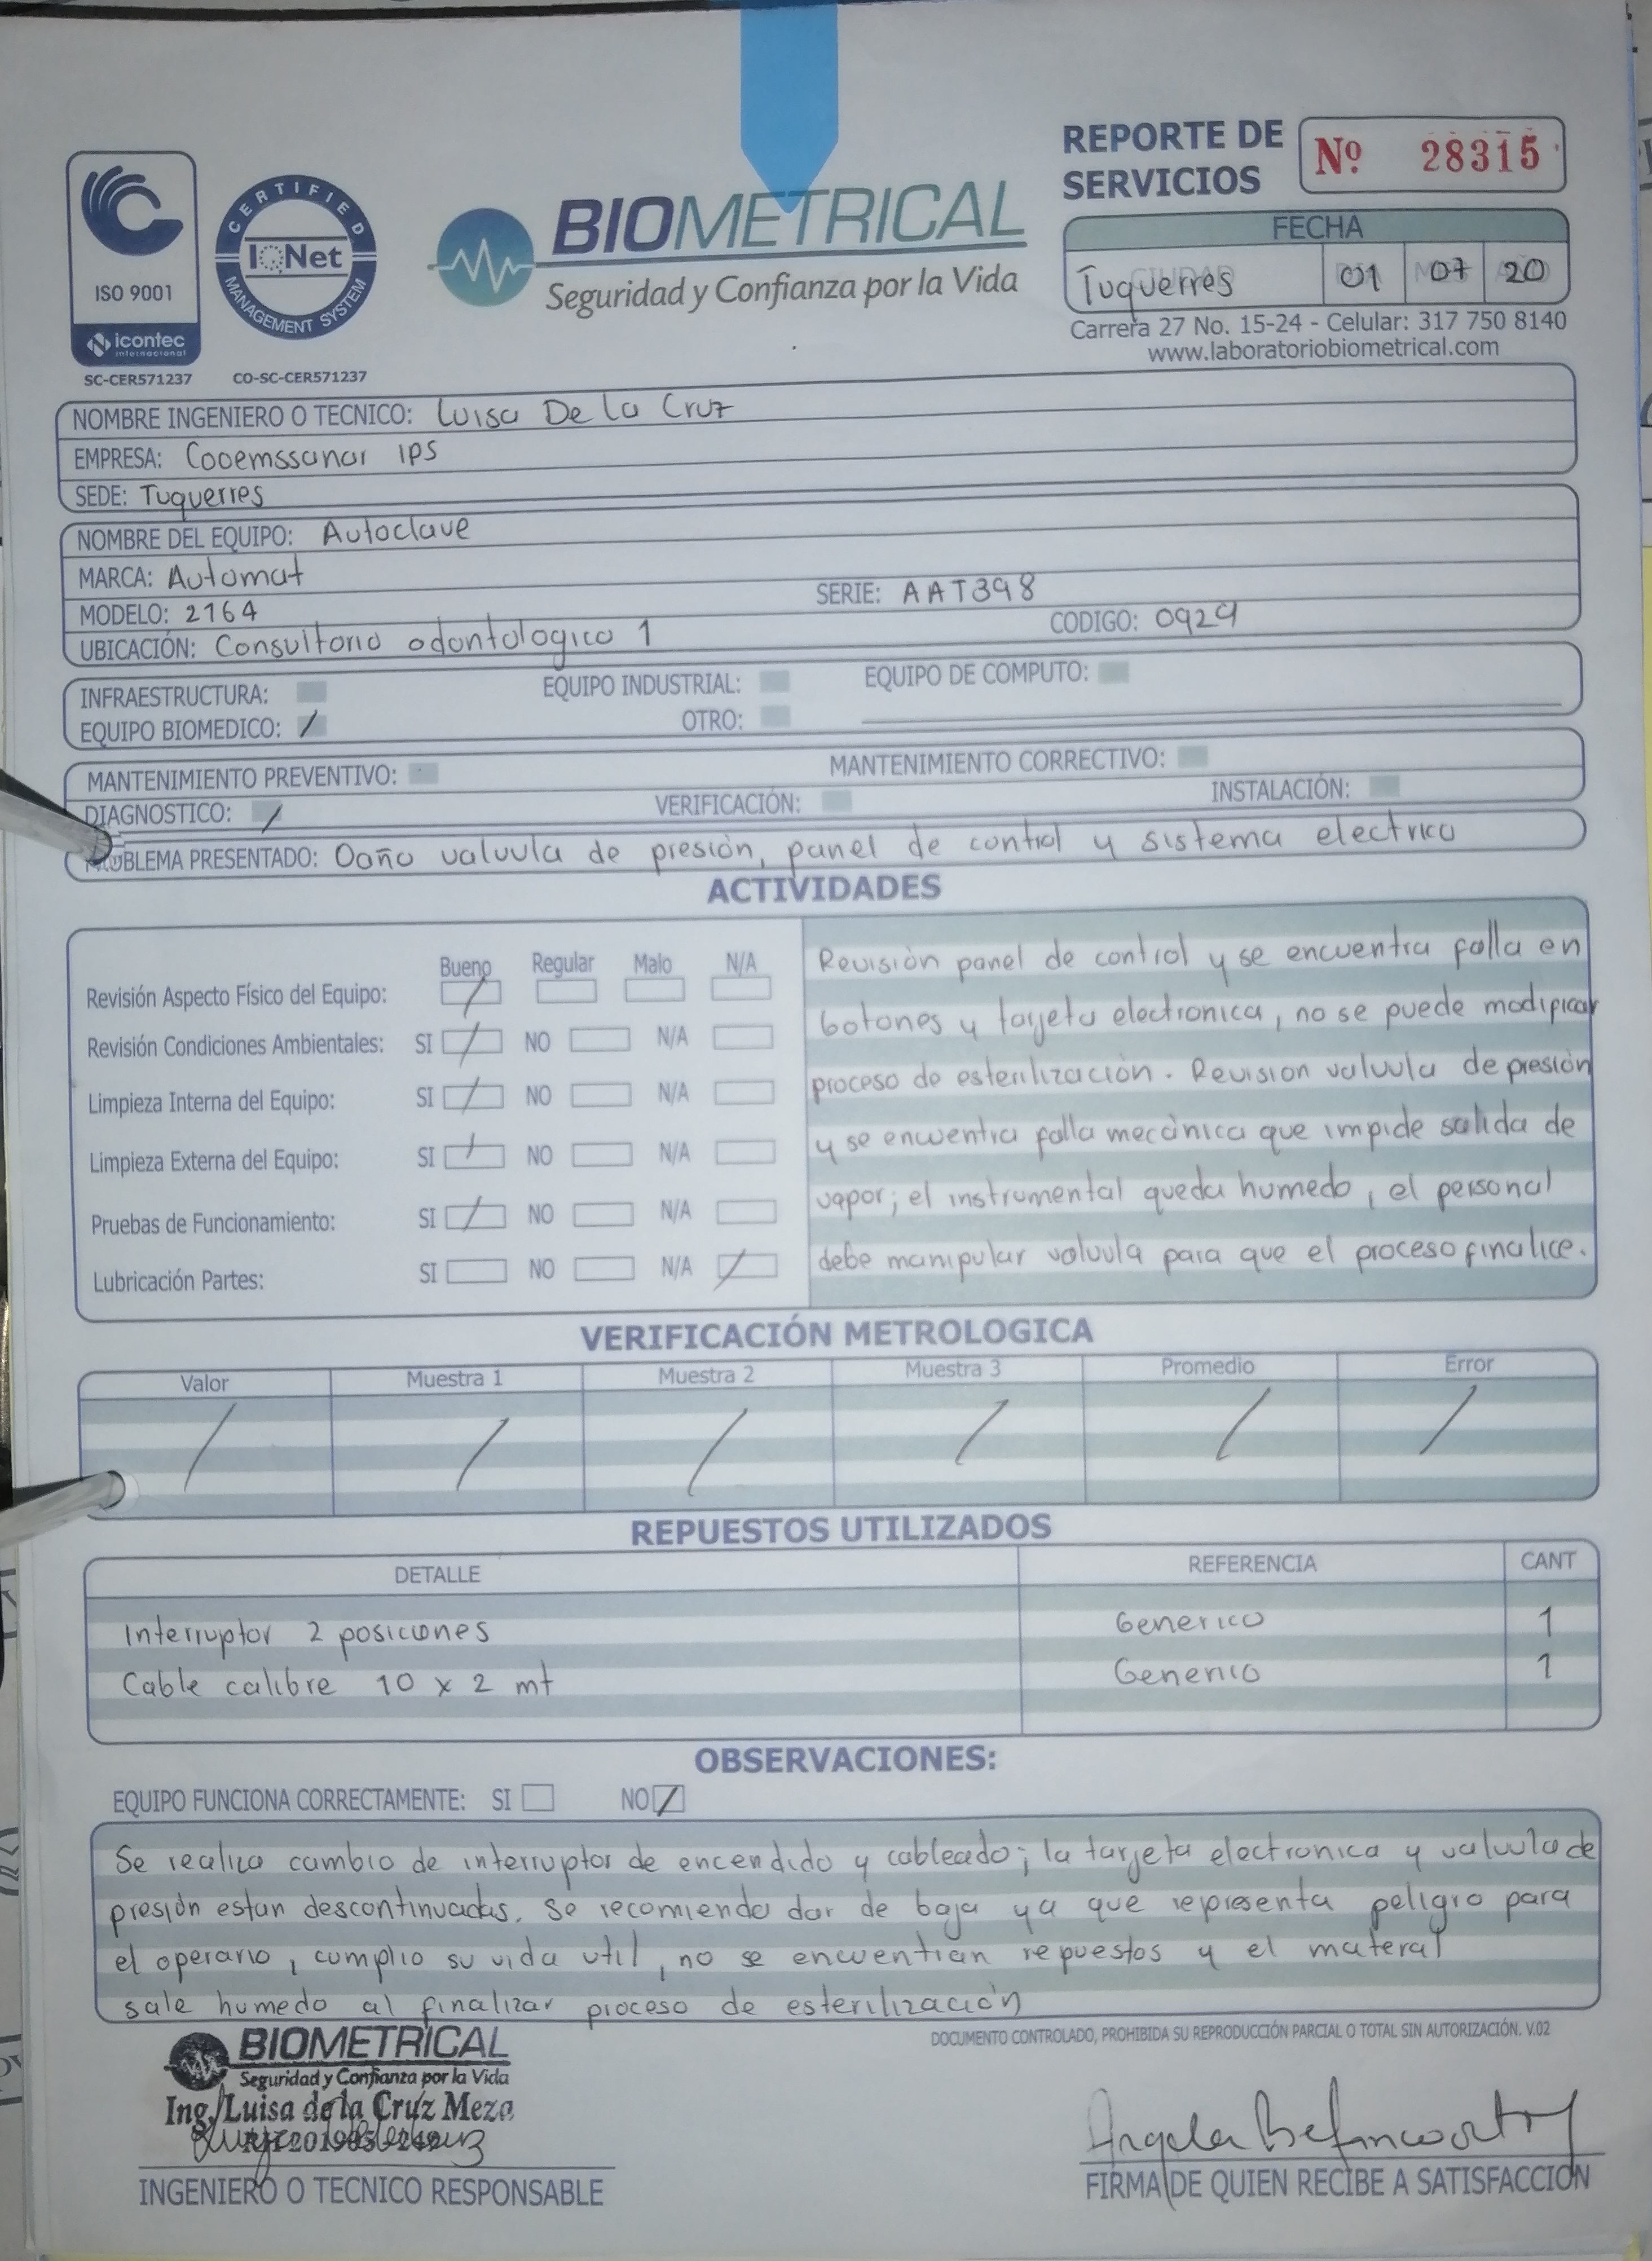 REPORTE DE
SERVICIOS
Nº 28315
FECHA
Tuquerres 01 07 20
Carrera 27 No. 15-24 - Celular: 317 750 8140
www.laboratoriobiometrical.com
ISO 9001
icontec
internacional
SC-CER571237
CERTIFIED
IQNet
MANAGEMENT SYSTEM
CO-SC-CER571237
BIOMETRICAL
Seguridad y Confianza por la Vida
NOMBRE INGENIERO O TECNICO: Luisa De La Cruz
EMPRESA: Cooemssanar IPS
SEDE: Tuquerres
NOMBRE DEL EQUIPO: Autoclave
MARCA: Automat
SERIE: AAT398
MODELO: 2164
CODIGO: 0929
UBICACIÓN: Consultorio odontologico 1
INFRAESTRUCTURA: EQUIPO INDUSTRIAL: EQUIPO DE COMPUTO:
EQUIPO BIOMEDICO: / OTRO:
MANTENIMIENTO PREVENTIVO: MANTENIMIENTO CORRECTIVO:
DIAGNOSTICO: / VERIFICACIÓN: INSTALACIÓN:
OBLEMA PRESENTADO: Daño valvula de presión, panel de control y sistema electrico
ACTIVIDADES
Bueno Regular Malo N/A
Revisión Aspecto Físico del Equipo: /
Revisión Condiciones Ambientales: SI / NO N/A
Limpieza Interna del Equipo: SI / NO N/A
Limpieza Externa del Equipo: SI / NO N/A
Pruebas de Funcionamiento: SI / NO N/A
Lubricación Partes: SI NO N/A /
Revisión panel de control y se encuentra falla en
botones y tarjeta electronica, no se puede modificar
proceso de esterilización. Revision valvula de presión
y se encuentra falla mecánica que impide salida de
vapor; el instrumental queda humedo, el personal
debe manipular valvula para que el proceso finalice.
VERIFICACIÓN METROLOGICA
Valor Muestra 1 Muestra 2 Muestra 3 Promedio Error
/ / / / / /
REPUESTOS UTILIZADOS
DETALLE REFERENCIA CANT
Interruptor 2 posiciones Generico 1
Cable calibre 10 x 2 mt Generico 1
OBSERVACIONES:
EQUIPO FUNCIONA CORRECTAMENTE: SI NO /
Se realiza cambio de interruptor de encendido y cableado; la tarjeta electronica y valvula de
presión estan descontinuadas. Se recomienda dar de baja ya que representa peligro para
el operario, cumplio su vida util, no se encuentran repuestos y el materal
sale humedo al finalizar proceso de esterilización
DOCUMENTO CONTROLADO, PROHIBIDA SU REPRODUCCIÓN PARCIAL O TOTAL SIN AUTORIZACIÓN. V.02
BIOMETRICAL
Seguridad y Confianza por la Vida
Ing. Luisa de la Cruz Meza
INGENIERO O TECNICO RESPONSABLE
Angela Betancourth
FIRMA DE QUIEN RECIBE A SATISFACCION